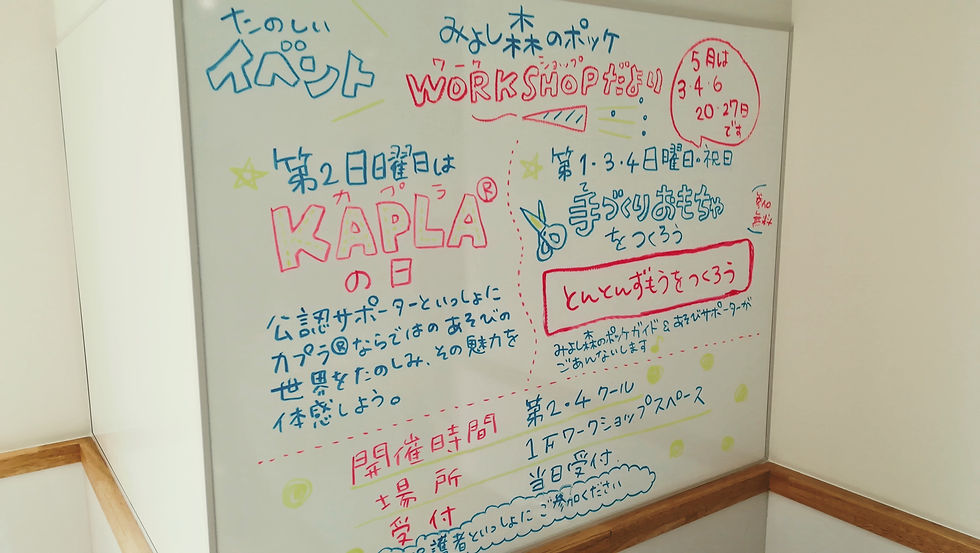 たのしい
イベント
みよし森のポッケ
ワークショップ
WORKSHOPだより
5月は
3・4・6
20・27日
です
第2日曜日は
カプラ
KAPLA®
の日
公認サポーターといっしょに
カプラ®ならではのあそびの
世界をたのしみ、その魅力を
体感しよう。
第1・3・4日曜日・祝日
手づくりおもちゃ
をつくろう
参加
無料
とんとんずもうをつくろう
みよし森のポッケガイド&あそびサポーターが
ごあんないします♪
開催時間 第2・4クール
場所 1Fワークショップスペース
受付 当日受付
護者といっしょにご参加ください